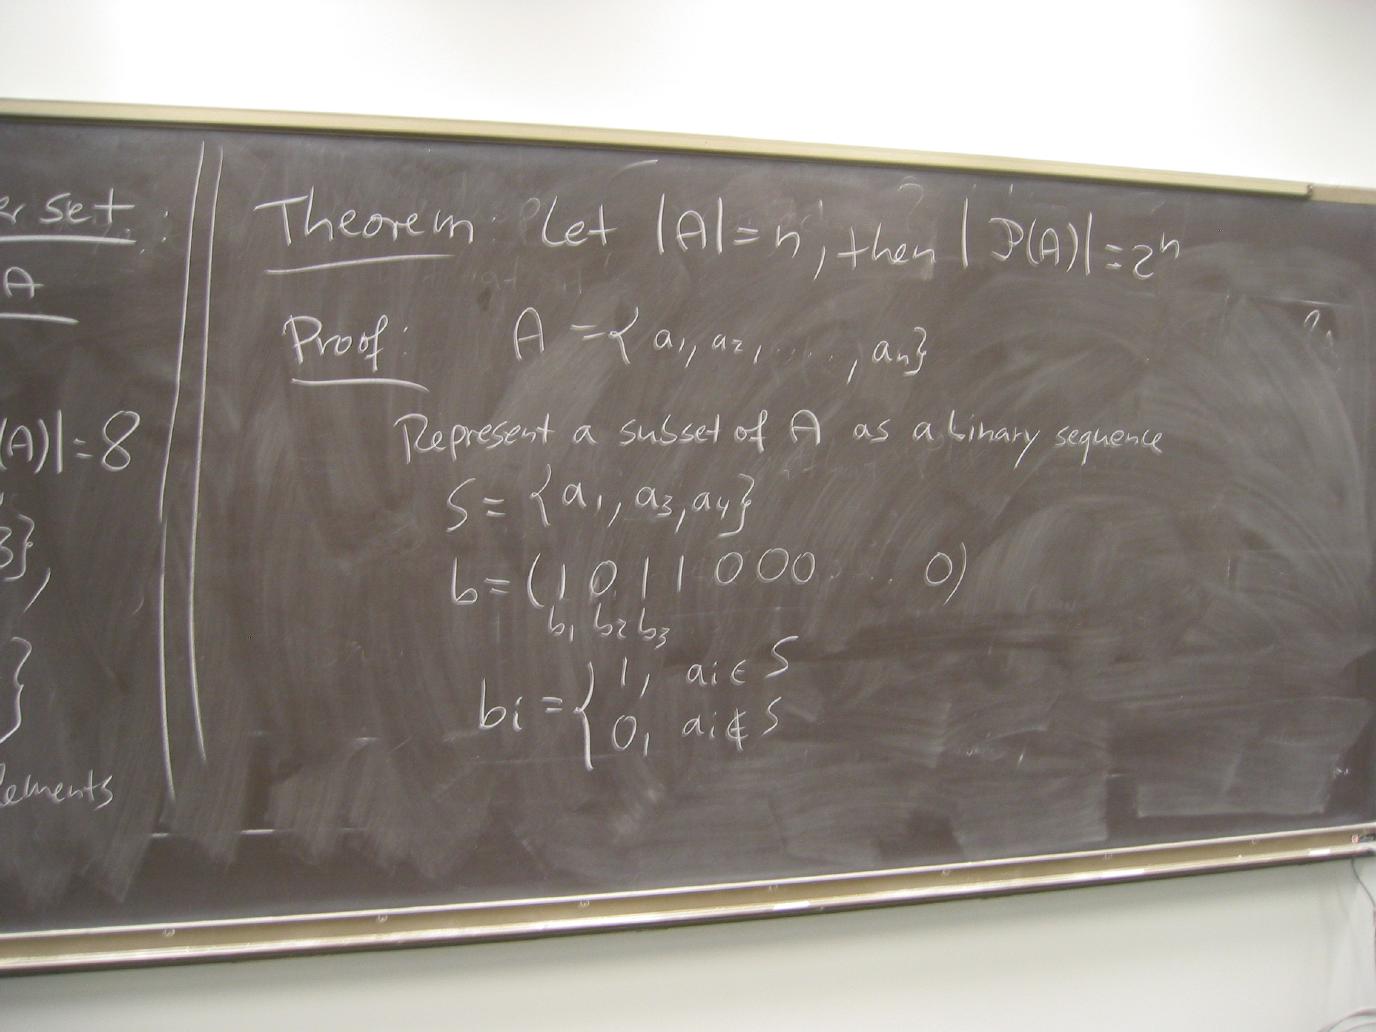 er set :
A
(A)|=8
3},
}
lements
Theorem: Let |A|=n, then |P(A)|=2ⁿ
Proof: A = {a₁, a₂, ...., aₙ}
Represent a subset of A as a binary sequence
S = {a₁, a₃, a₄}
b = (1 0 1 1 0 0 0 . . 0)
b₁ b₂ b₃
bi = { 1, ai ∈ S
0, ai ∉ S